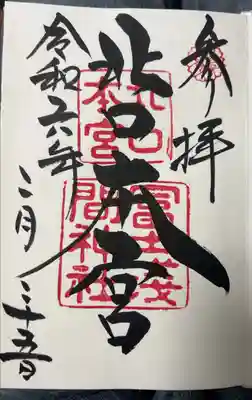 参拝
北口本宮
北口
本宮
冨士淺
間神社
令和六年二月二十五日